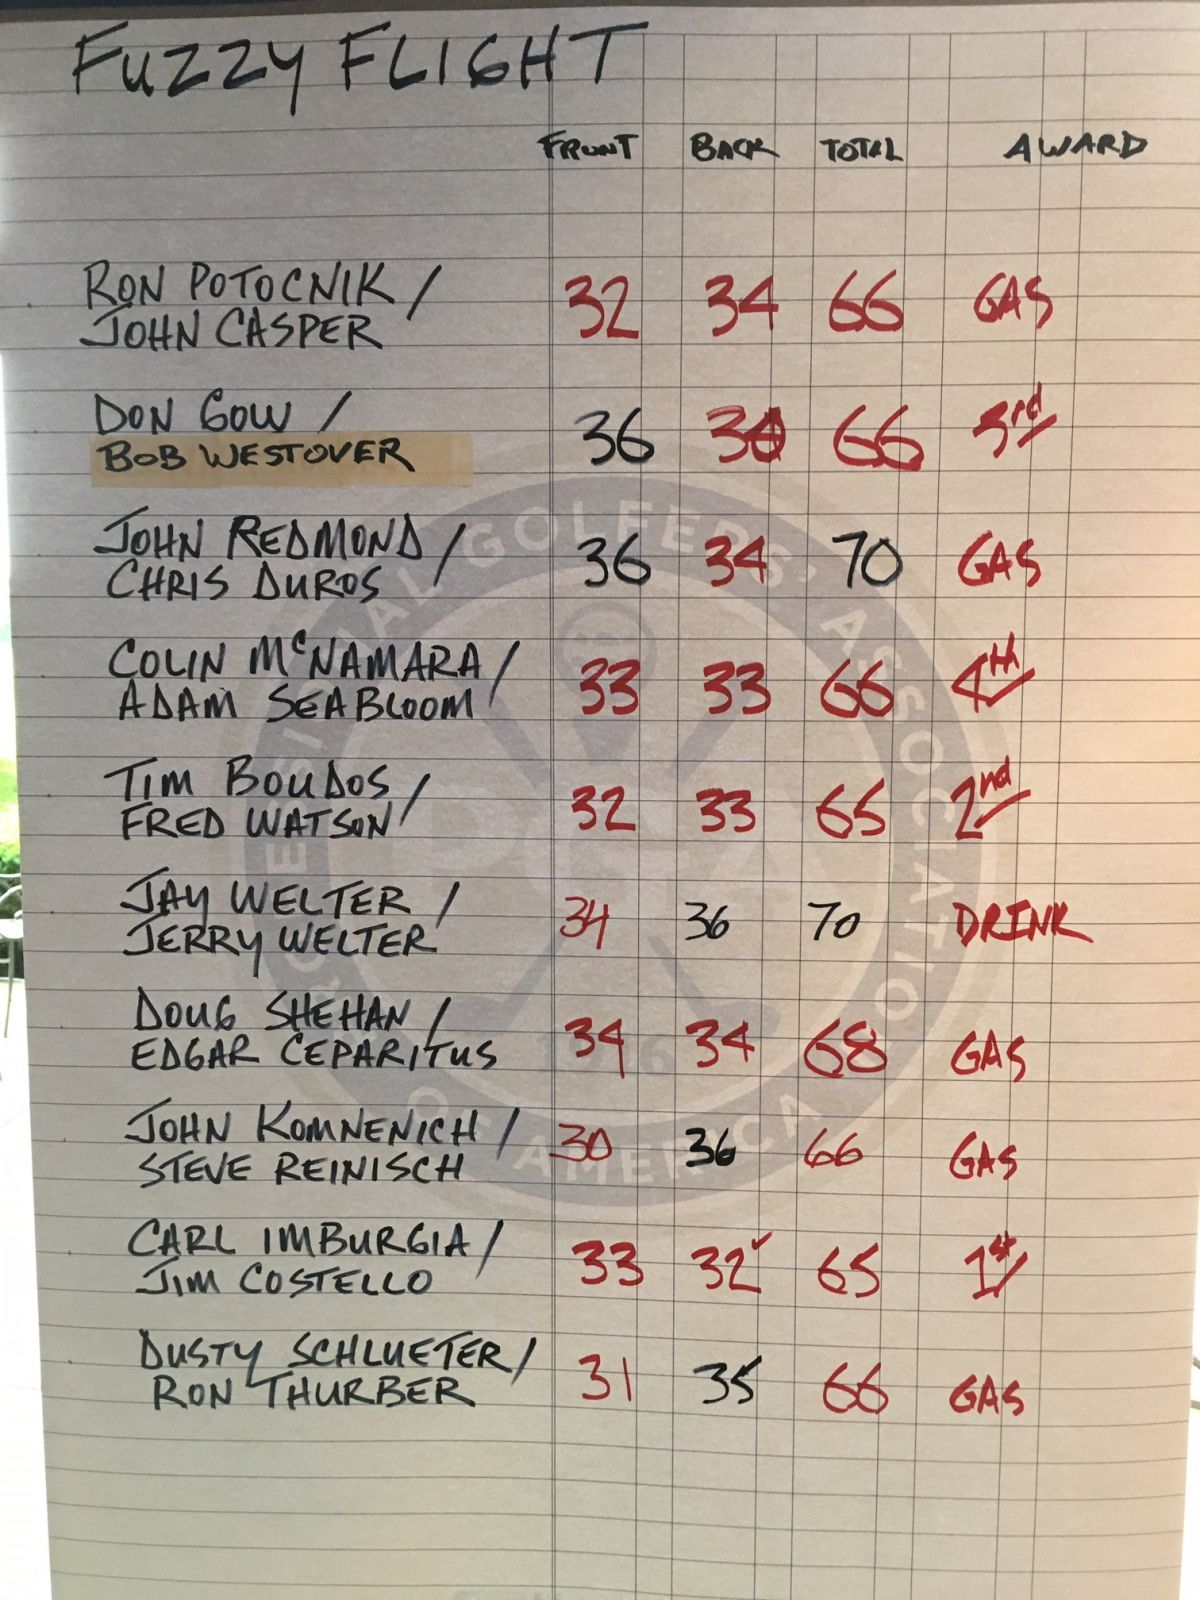 FUZZY FLIGHT
FRONT BACK TOTAL AWARD
RON POTOCNIK /
JOHN CASPER 32 34 66 GAS
DON GOW /
BOB WESTOVER 36 30 66 3rd
JOHN REDMOND /
CHRIS DUROS 36 34 70 GAS
COLIN McNAMARA /
ADAM SEABLOOM 33 33 66 4th
TIM BOUDOS /
FRED WATSON 32 33 65 2nd
JAY WELTER /
JERRY WELTER 34 36 70 DRINK
DOUG SHEHAN /
EDGAR CEPARITUS 34 34 68 GAS
JOHN KOMNENICH /
STEVE REINISCH 30 36 66 GAS
CARL IMBURGIA /
JIM COSTELLO 33 32 65 1st
DUSTY SCHLUETER /
RON THURBER 31 35 66 GAS
GOLFERS' ASSOCIATIO
AMERICA